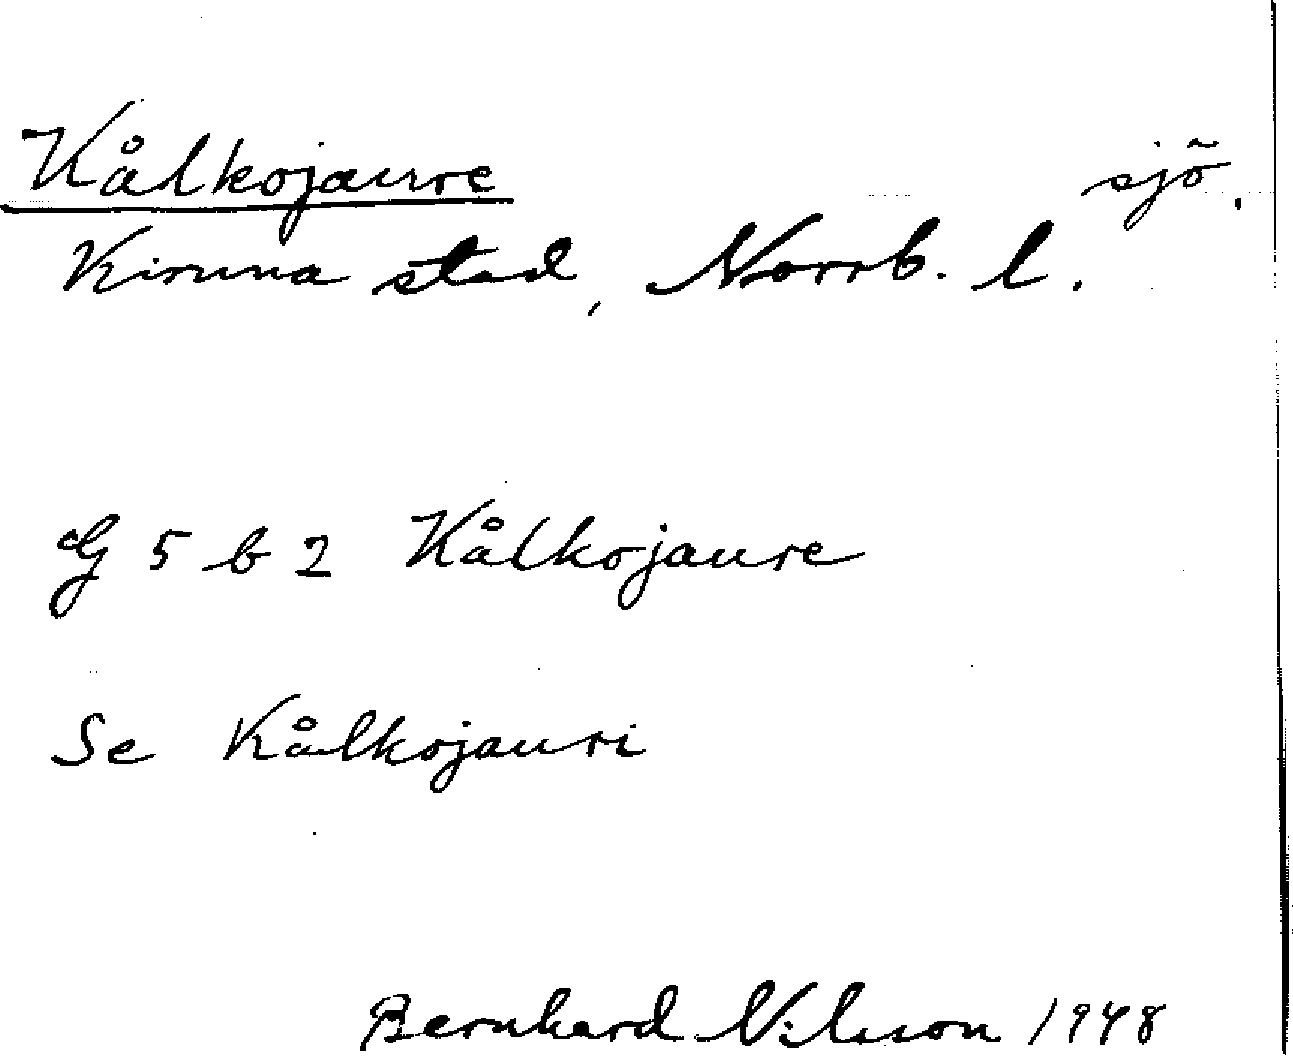 Kålkojaure sjö.
Kiruna stad, Norrb. l.
G 5 b 2 Kålkojaure
Se Kålkojauri
Bernhard Nilsson 1948